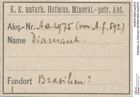 K. k. naturh. Hofmus. Mineral.-petr. Abt.
Akqu.-Nr. Aa 2975 (von A.f. 892)
Name Diamant.
Fundort Brasilien?